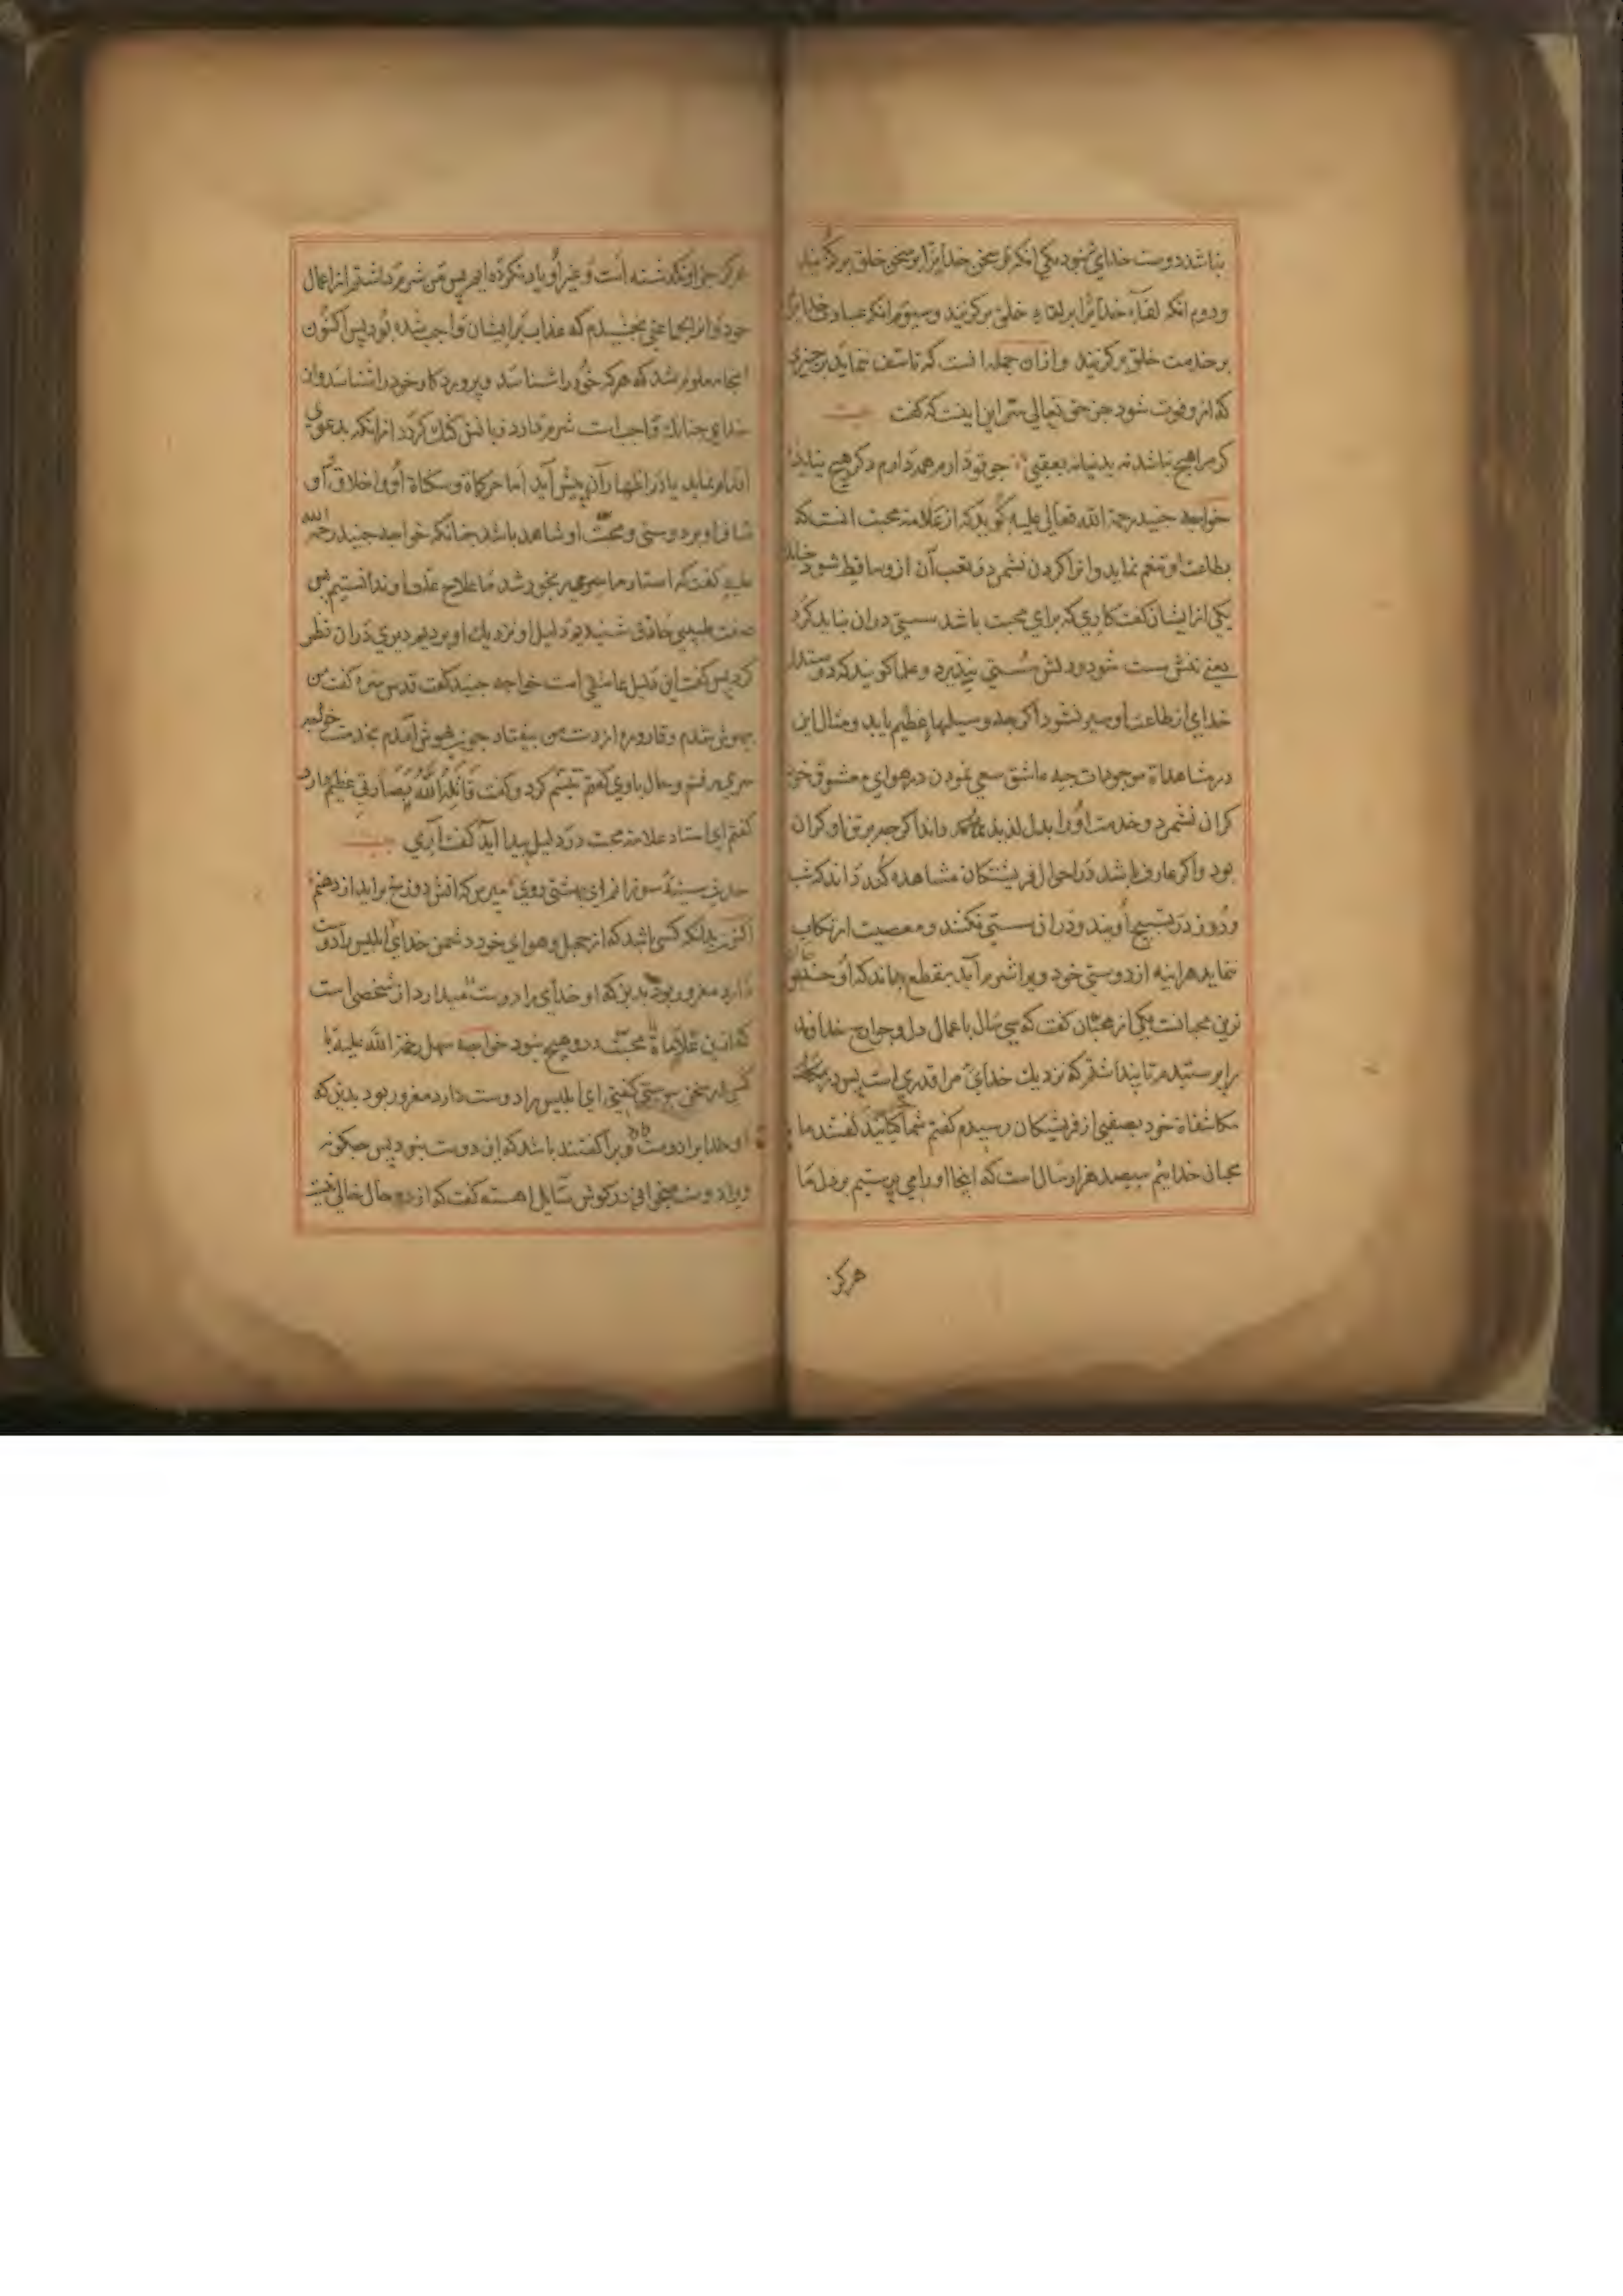 نباشد دوست خدای نبود یکی انکه سخن خدایرا بر سخن خلق برگزیند
ودوم انکه لقاء خدایرا بر لقاء خلق برگزیند وسیوم انکه عبادت خدایرا
بر خدمت خلق برگزیند وازان جمله انست که تاسف ننماید بر چیزی
که ازو فوت شود جز حق تعالی سر این اینست که گفت بیت
گر مرا هیچ نباشد نه بدنیا نه بعقبی چو تو دارم همه دارم دگر هیچ نباید
خواجه جنید رحمة الله تعالی علیه گوید که از علامت محبت انست که
بطاعت او تنعم نماید وانرا گران نشمرد وتعب آن ازو ساقط شود چنانکه
یکی از ایشان گفت کاری که برای محبت باشد سستی دران نباید کرد
یعنی تنش سست شود ودلش سستی نپذیرد وعلما گویند که دوستدار
خدای از طاعت او سیر نشود اگرچه وسیلها عظیم یابد ومثال این
در مشاهدات موجودات چه عاشق سعی نمودن در هوای معشوق خود
گران نشمرد وخدمت اورا بدل لذیذ داند اگرچه بر تن او گران
بود واگر عارف باشد در احوال فریشتگان مشاهده کند داند که شب
وروز در تسبیح اویند ودران سستی نکنند ومعصیت ارتکاب
ننماید هراینه از دوستی خود ویرا شرم آید بقطع بداند که او
ترین محبانست یکی از محبان گفت که سی سال باعمال دل وجوارح خداوند
را پرستیدم تا پنداشتم که نزدیک خدای مرا قدری است پس در
مکاشفات خود بصفی از فریشتکان رسیدم گفتم شما کیانید گفتند ما
محبان خداییم سیصد هزار سال است که اینجا اورا می پرستیم بر دل ما
هرگز
هرگز جز او نگذشته است وغیر اورا یاد نکرده ایم پس من شرم داشتم از اعمال
خود وانرا بجماعتی بخشیدم که عذاب بر ایشان واجب شده بود پس اکنون
اینجا معلوم شد که هرکه خود را شناسد وپروردگار خود را شناسد وازان
خدای چنانک واجب است شرم دارد زبانش گنگ گردد ازانکه بدعوی
اقدام نماید یا در اظهار آن پیش آید اما حرکات وسکنات او واخلاق او
او بر دوستی ومحبت او شاهد باشد چنانکه خواجه جنید رحمه الله
علیه گفت که استاد ما سری رنجور شد ما علاج علت او ندانستیم پس
صفت طبیبی حاذق شنیدیم دلیل او نزدیک او بردیم دیری دران نظر
کرد پس گفت این دلیل عاشقی است خواجه جنید گفت قدس سره گفت من
بیهوش شدم وقاروره از دست من بیفتاد چون بهوش آمدم بخدمت خواجه
سری رفتم وحال باوی گفتم تبسم کرد وگفت قاتله الله بصارتی عظیم دارد
گفتم ای استاد علامت محبت در دلیل پیدا آید گفت آری بیت
حدیث سینه سوزانم ای بهشتی روی مپرس که اتش دوزخ براید از دهنم
اکنون بدانکه کسی باشد که از جهل وهوای خود دشمن خدای ابلیس را دوست
دارد مغرور بود بدین که او خدای را دوست میدارد ان شخصی است
که ازین علامات محبت درو هیچ نبود خواجه سهل رحمة الله علیه با
کسی در سخن پیوستی گفتی ای ابلیس را دوست دارد مغرور بود بدین که
او خدایرا دوست ویرا گفتند باشد که ان دوست نبود پس چگونه
ویرا دوست میخوانی در گوش سایل اهسته گفت که از دو حال خالی نیست